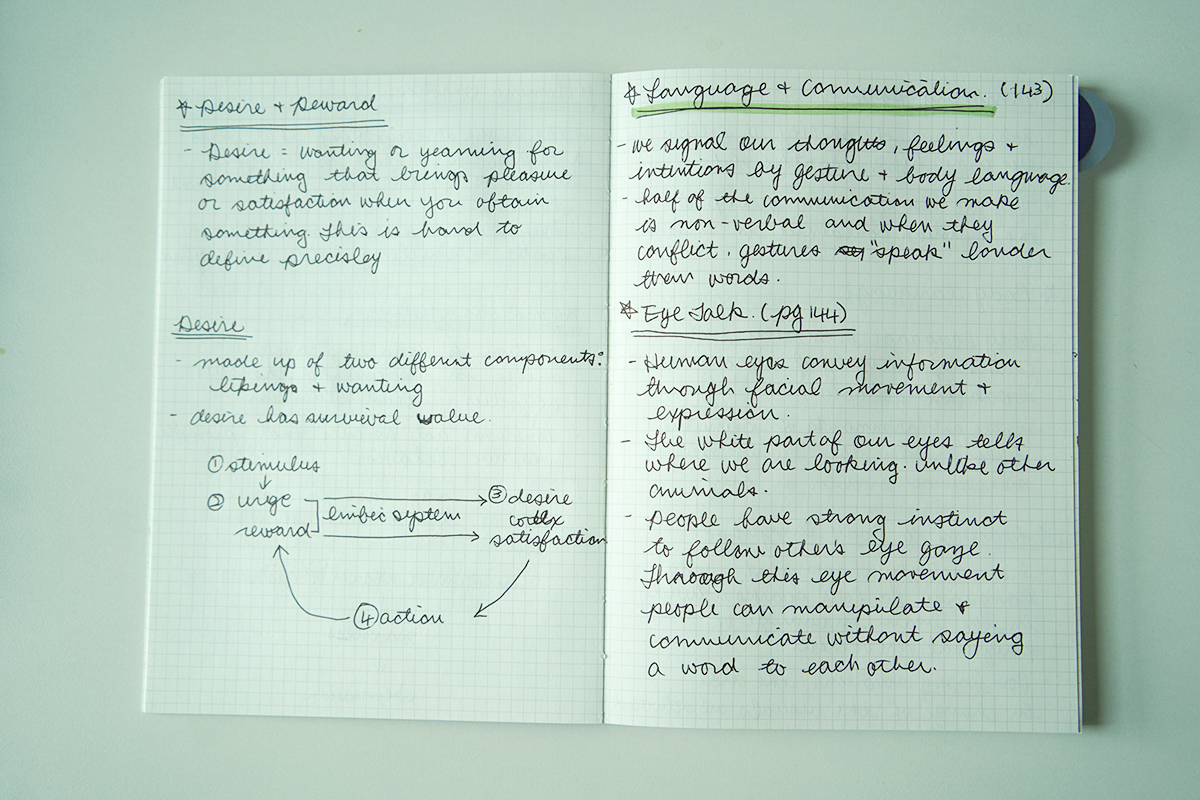 ☆ Desire + Reward
- Desire = wanting or yearning for
something that brings pleasure
or satisfaction when you obtain
something. This is hard to
define precisley
Desire
- made up of two different components:
likings + wanting
- desire has survival value.
① stimulus
② urge
reward
limbic system
③ desire
cortex
satisfaction
④ action
☆ Language + Communication. (143)
- we signal our thoughts, feelings +
intentions by gesture + body language.
- half of the communication we make
is non-verbal and when they
conflict, gestures "speak" louder
then words.
☆ Eye Talk. (pg 144)
- Human eyes convey information
through facial movement +
expression.
- The white part of our eyes tells
where we are looking. unlike other
animals.
- people have strong instinct
to follow other's eye gaze.
Through this eye movement
people can manipulate &
communicate without saying
a word to each other.